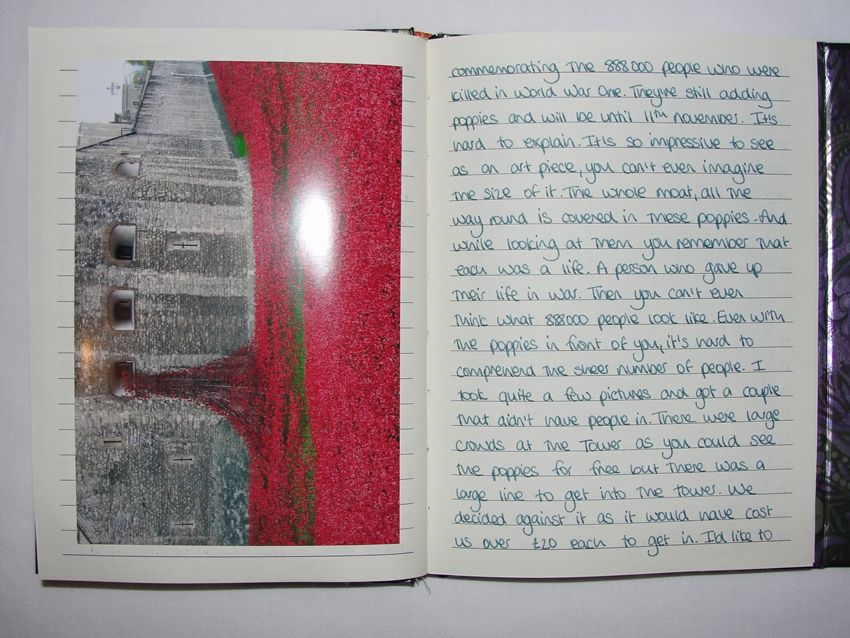 commemorating the 888000 people who were
killed in World War One. They're still adding
poppies and will be until 11th November. It's
hard to explain. It's so impressive to see
as an art piece, you can't even imagine
the size of it. The whole moat, all the
way round is covered in these poppies. And
while looking at them you remember that
each was a life. A person who gave up
their life in war. Then you can't even
think what 888000 people look like. Even with
the poppies in front of you, it's hard to
comprehend the sheer number of people. I
took quite a few pictures and got a couple
that didn't have people in. There were large
crowds at the Tower as you could see
the poppies for free but there was a
large line to get into the tower. We
decided against it as it would have cost
us over £20 each to get in. I'd like to